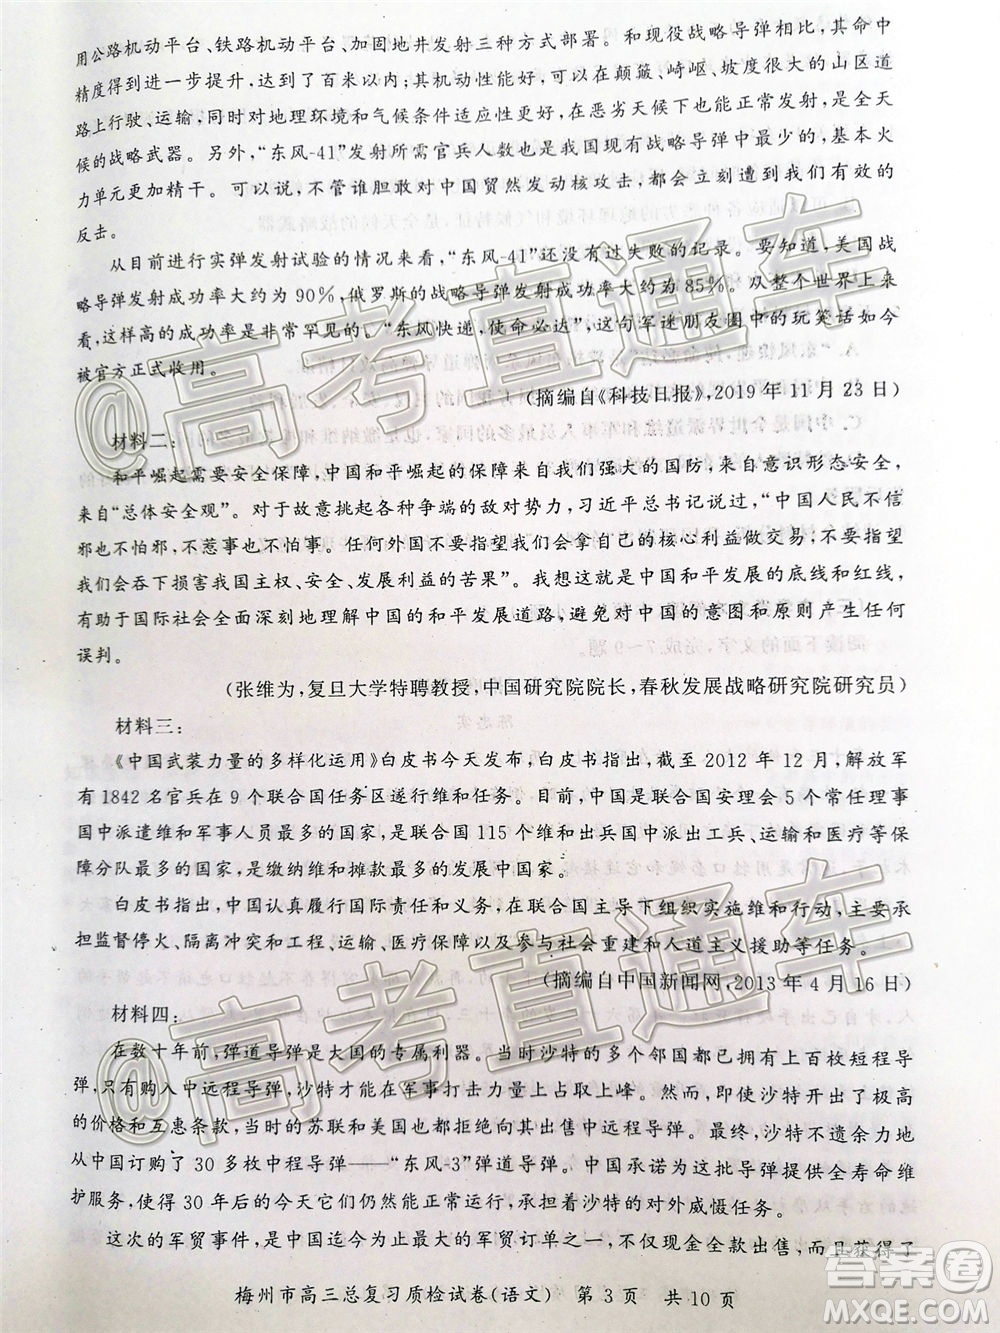 用公路机动平台、铁路机动平台、加固地井发射三种方式部署。和现役战略导弹相比,其命中
精度得到进一步提升,达到了百米以内;其机动性能好,可以在颠簸、崎岖、坡度很大的山区道
路上行驶、运输,同时对地理环境和气候条件适应性更好,在恶劣天候下也能正常发射,是全天
候的战略武器。另外,“东风-41”发射所需官兵人数也是我国现有战略导弹中最少的,基本火
力单元更加精干。可以说,不管谁胆敢对中国贸然发动核攻击,都会立刻遭到我们有效的
反击。
从目前进行实弹发射试验的情况来看,“东风-41”还没有过失败的记录。要知道,美国战
略导弹发射成功率大约为90%,俄罗斯的战略导弹发射成功率大约为85%。从整个世界上来
看,这样高的成功率是非常罕见的。“东风快递,使命必达”,这句军迷朋友圈中的玩笑话如今
被官方正式收用。
(摘编自《科技日报》,2019年11月23日)
材料二:
和平崛起需要安全保障,中国和平崛起的保障来自我们强大的国防,来自意识形态安全,
来自“总体安全观”。对于故意挑起各种争端的敌对势力,习近平总书记说过,“中国人民不信
邪也不怕邪,不惹事也不怕事。任何外国不要指望我们会拿自己的核心利益做交易,不要指望
我们会吞下损害我国主权、安全、发展利益的苦果”。我想这是中国和平发展的底线和红线,
有助于国际社会全面深刻地理解中国的和平发展道路,避免对中国的意图和原则产生任何
误判。
(张维为,复旦大学特聘教授,中国研究院院长,春秋发展战略研究院研究员)
材料三:
《中国武装力量的多样化运用》白皮书今天发布,白皮书指出,截至2012年12月,解放军
有1842名官兵在9个联合国任务区遂行维和任务。目前,中国是联合国安理会5个常任理事
国中派遣维和军事人员最多的国家,是联合国115个维和出兵国中派出工兵、运输和医疗等保
障分队最多的国家,是缴纳维和摊款最多的发展中国家。
白皮书指出,中国认真履行国际责任和义务,在联合国主导下组织实施维和行动,主要承
担监督停火、隔离冲突和工程、运输、医疗保障以及参与社会重建和人道主义援助等任务。
(摘编自中国新闻网,2013年4月16日)
材料四:
在数十年前,弹道导弹是大国的专属利器。当时沙特的多个邻国都已拥有上百枚短程导
弹,只有购入中远程导弹,沙特才能在军事打击力量上占取上峰。然而,即使沙特开出了极高
的价格和互惠条款,当时的苏联和美国也都拒绝向其出售中远程导弹。最终,沙特不遗余力地
从中国订购了30多枚中程导弹——“东风-3”弹道导弹。中国承诺为这批导弹提供全寿命维
护服务,使得30年后的今天它们仍然能正常运行,承担着沙特的对外威慑任务。
这次的军贸事件,是中国迄今为止最大的军贸订单之一,不仅现金全款出售,而且获得了
梅州市高三总复习质检试卷(语文) 第3页 共10页
@高考直通车
@高考直通车
答案圈
MXQE.COM